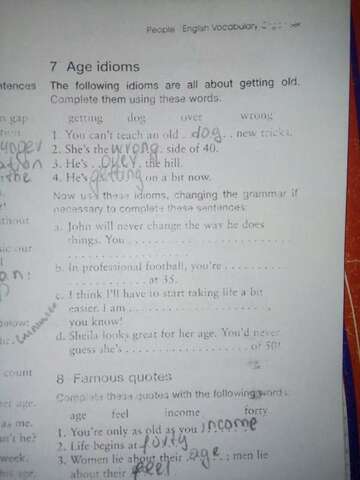 People English Vocabulary
7 Age idioms
The following idioms are all about getting old.
Complete them using these words.
getting dog over wrong
1. You can't teach an old . dog . . new tricks.
2. She's the wrong . side of 40.
3. He's . . over . the hill.
4. He's getting on a bit now.
Now use these idioms, changing the grammar if
necessary to complete these sentences:
a. John will never change the way he does
things. You . . . . . . . . . . . . . . . . . . . .
. . . . . . . . . . . . . . . . . . . . . . . .
b. In professional football, you're . . . . . . . . .
. . . . . . . . . . . . . . . at 35.
c. I think I'll have to start taking life a bit
easier. I am . . . . . . . . . . . . . . . . . . ,
you know!
d. Sheila looks great for her age. You'd never
guess she's . . . . . . . . . . . . . . . of 50!
8 Famous quotes
Complete these quotes with the following words:
age feel income forty
1. You're only as old as you income
2. Life begins at forty
3. Women lie about their age . . ; men lie
about their feel
ntences
n gap
the
thout
sic our
below:
count
er age.
as me.
n't he?
week.
his age.